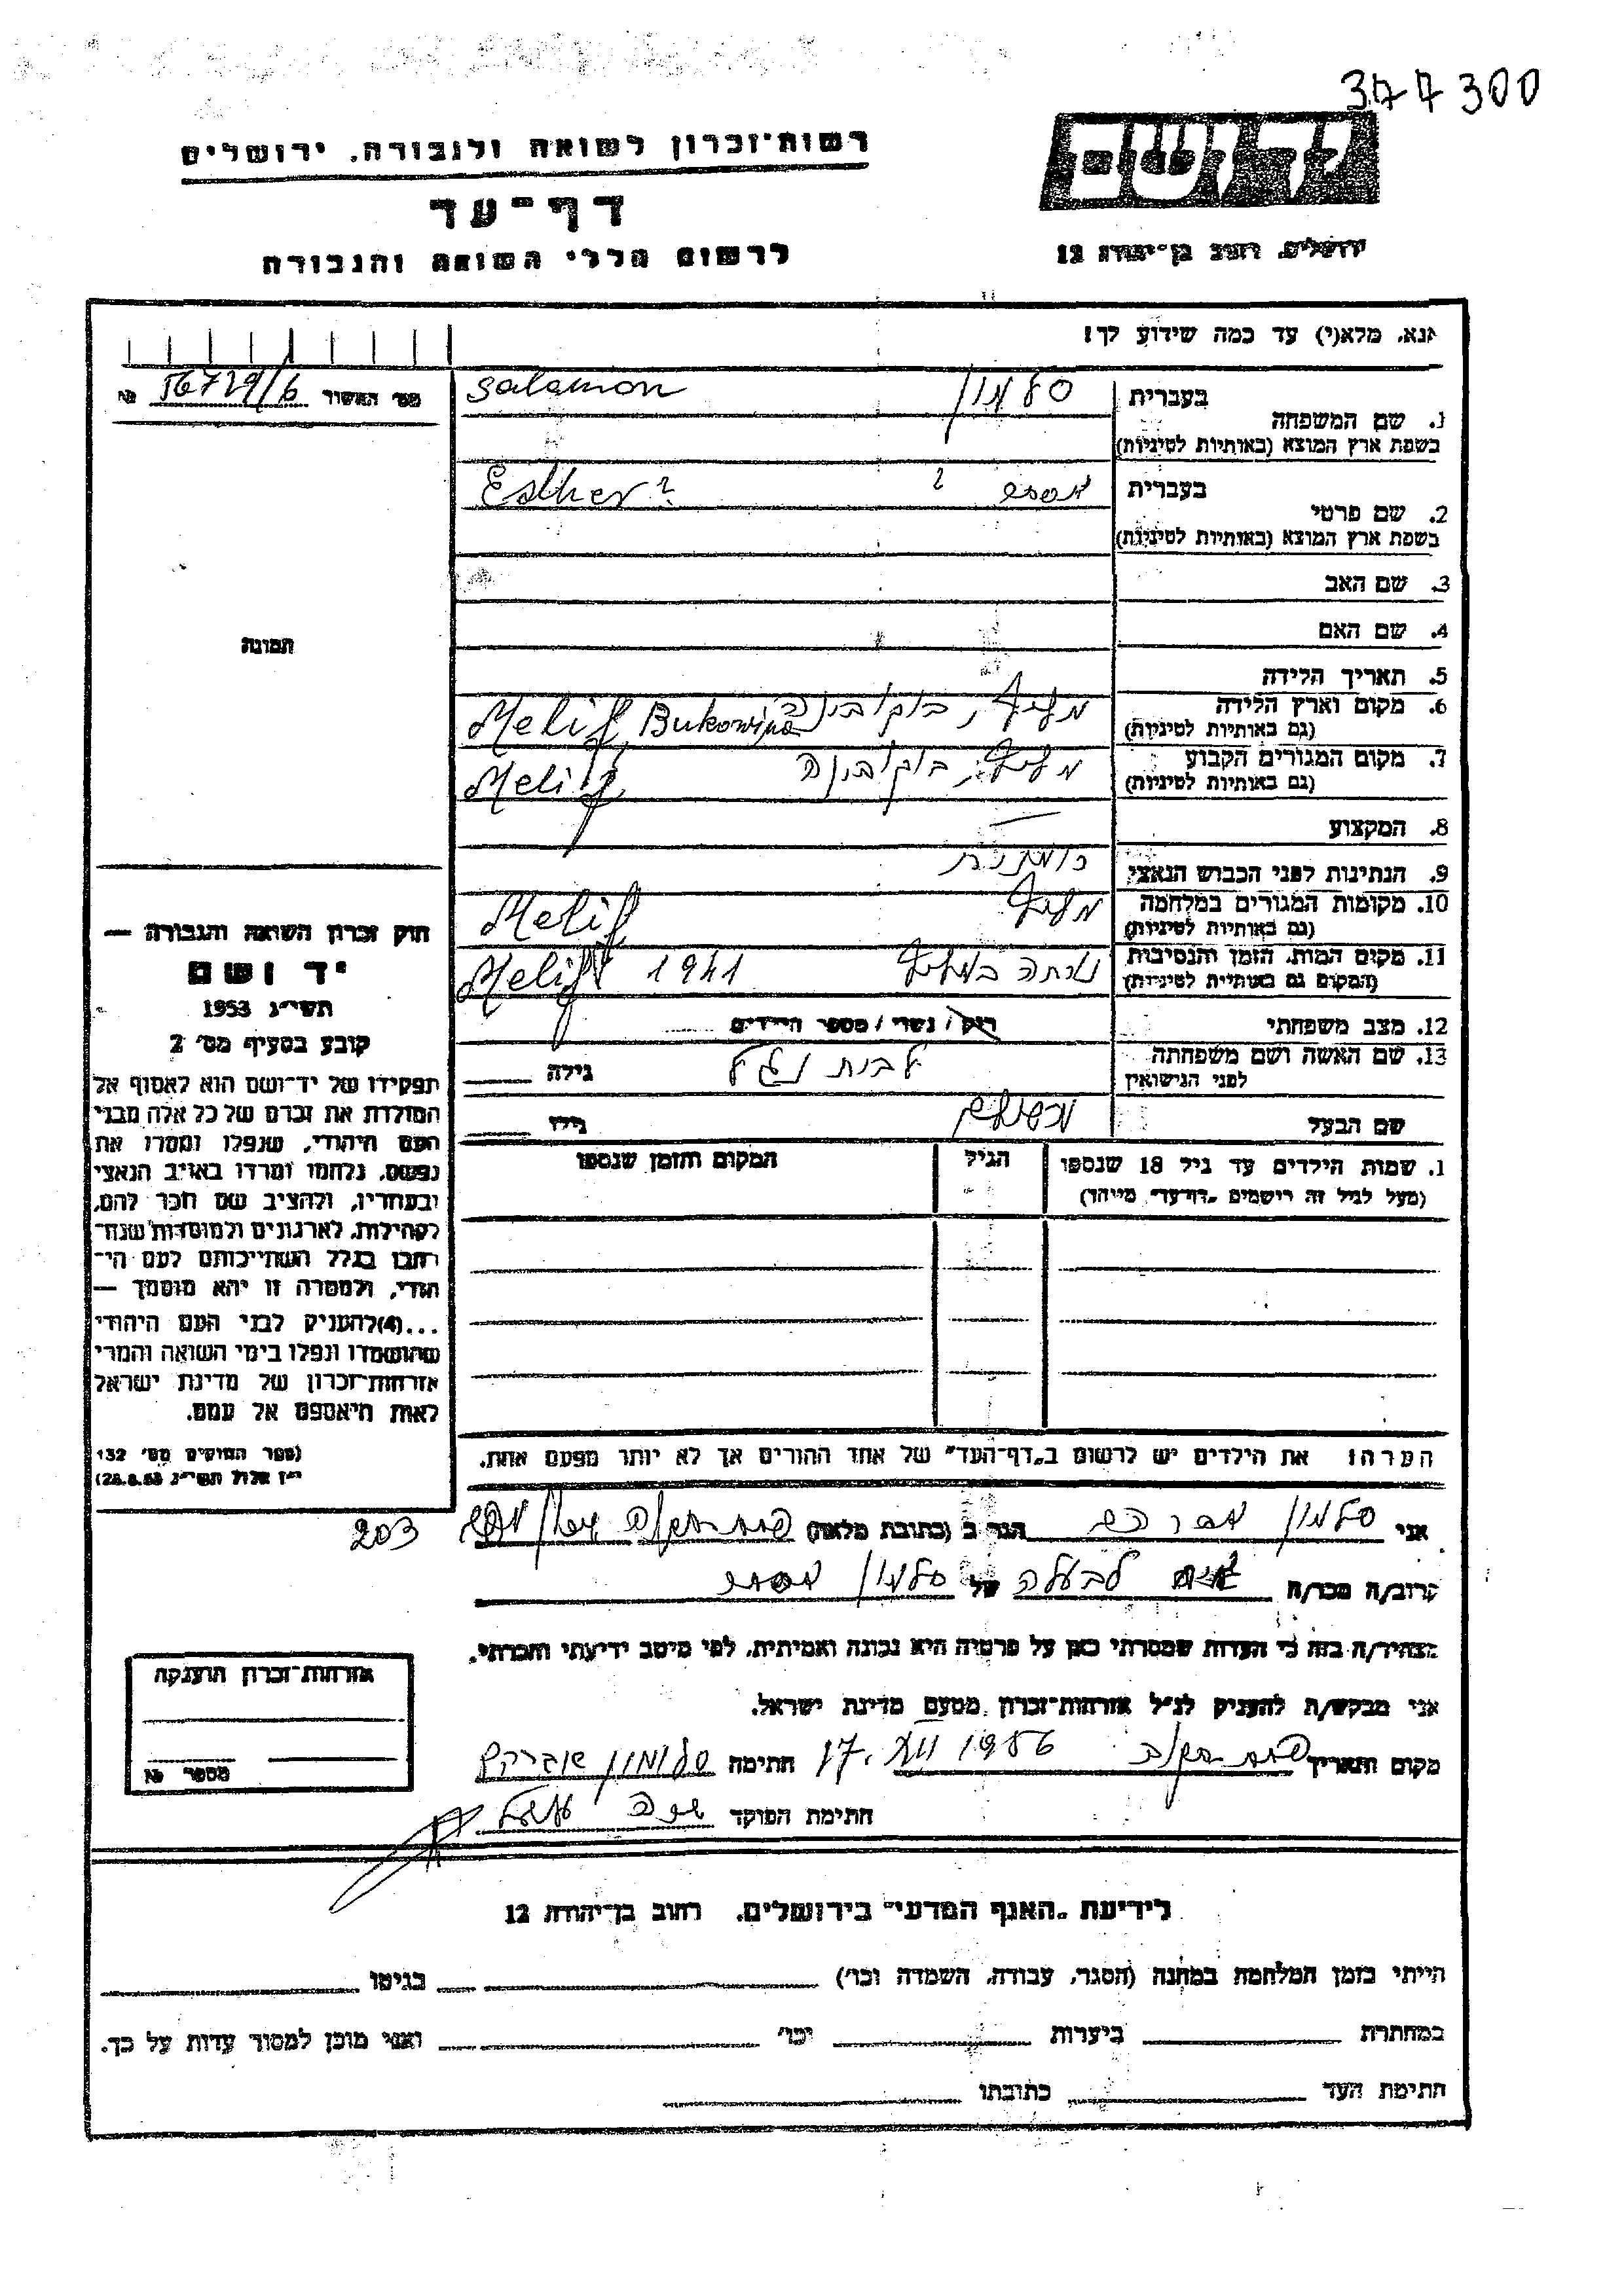 377300
רשות־זכרון לשואה ולגבורה, ירושלים
יד ושם
דף־עד
לרשום חללי השואה והגבורה
ירושלים, רחוב בן־יהודה 12
נא, מלא(י) עד כמה שידוע לך!
מס׳ האשור 16729/6 №
בעברית סלמון Salamon
1. שם המשפחה
בשפת ארץ המוצא (באותיות לטיניות)
בעברית אסתר ? Esther ?
2. שם פרטי
בשפת ארץ המוצא (באותיות לטיניות)
3. שם האב
4. שם האם
תמונה
5. תאריך הלידה
6. מקום וארץ הלידה מליף, בוקובינה Melif, Bukowina
(גם באותיות לטיניות)
7. מקום המגורים הקבוע מליף, בוקובינה Melif
(גם באותיות לטיניות)
8. המקצוע —
9. הנתינות לפני הכבוש הנאצי רומנית
10. מקומות המגורים במלחמה מליף Melif
(גם באותיות לטיניות)
11. מקום המות, הזמן והנסיבות נורתה במליף Melif 1941
(המקום גם באותיות לטיניות)
12. מצב משפחתי רווק / נשוי / מספר הילדים
13. שם האשה ושם משפחתה לבית גילה
לפני הנישואין
שם הבעל גילו
1. שמות הילדים עד גיל 18 שנספו הגיל המקום והזמן שנספו
(מעל לגיל זה רושמים "דף־עד" מיוחד)
חוק זכרון השואה והגבורה —
יד ושם
תשי״ג 1953
קובע בסעיף מס׳ 2
תפקידו של יד־ושם הוא לאסוף אל
המולדת את זכרם של כל אלה מבני
העם היהודי, שנפלו ומסרו את
נפשם, נלחמו ומרדו באויב הנאצי
ובעוזריו, ולהציב שם וזכר להם,
לקהילות, לארגונים ולמוסדות שנח־
רבו בגלל השתייכותם לעם הי־
הודי, ולמטרה זו יהא מוסמך —
...(4) להעניק לבני העם היהודי
שהושמדו ונפלו בימי השואה והמרי
אזרחות־זכרון של מדינת ישראל
לאות היאספם אל עמם.
(ספר החוקים מס׳ 132
י״ז אלול תשי״ג 28.8.53)
הערה: את הילדים יש לרשום ב"דף־העד" של אחד ההורים אך לא יותר מפעם אחת.
אני סלמון אברהם הגר ב (כתובת מלאה) פתח תקוה
203
קרוב/ה מכר/ה לבעלה של סלמון אסתר
מצהיר/ה בזה כי העדות שמסרתי כאן על פרטיה היא נכונה ואמיתית, לפי מיטב ידיעתי והכרתי.
אני מבקש/ת להעניק לנ״ל אזרחות־זכרון מטעם מדינת ישראל.
מקום ותאריך פתח תקוה 17. VII 1956 חתימה סלומון אברהם
חתימת הפוקד
אזרחות־זכרון הוענקה
מספר №
לידיעת "האגף המדעי" בירושלים, רחוב בן־יהודה 12
הייתי בזמן המלחמה במחנה (הסגר, עבודה, השמדה וכו׳) בגיטו
במחתרת ביערות וכו׳ ואני מוכן למסור עדות על כך.
חתימת העד כתובתו